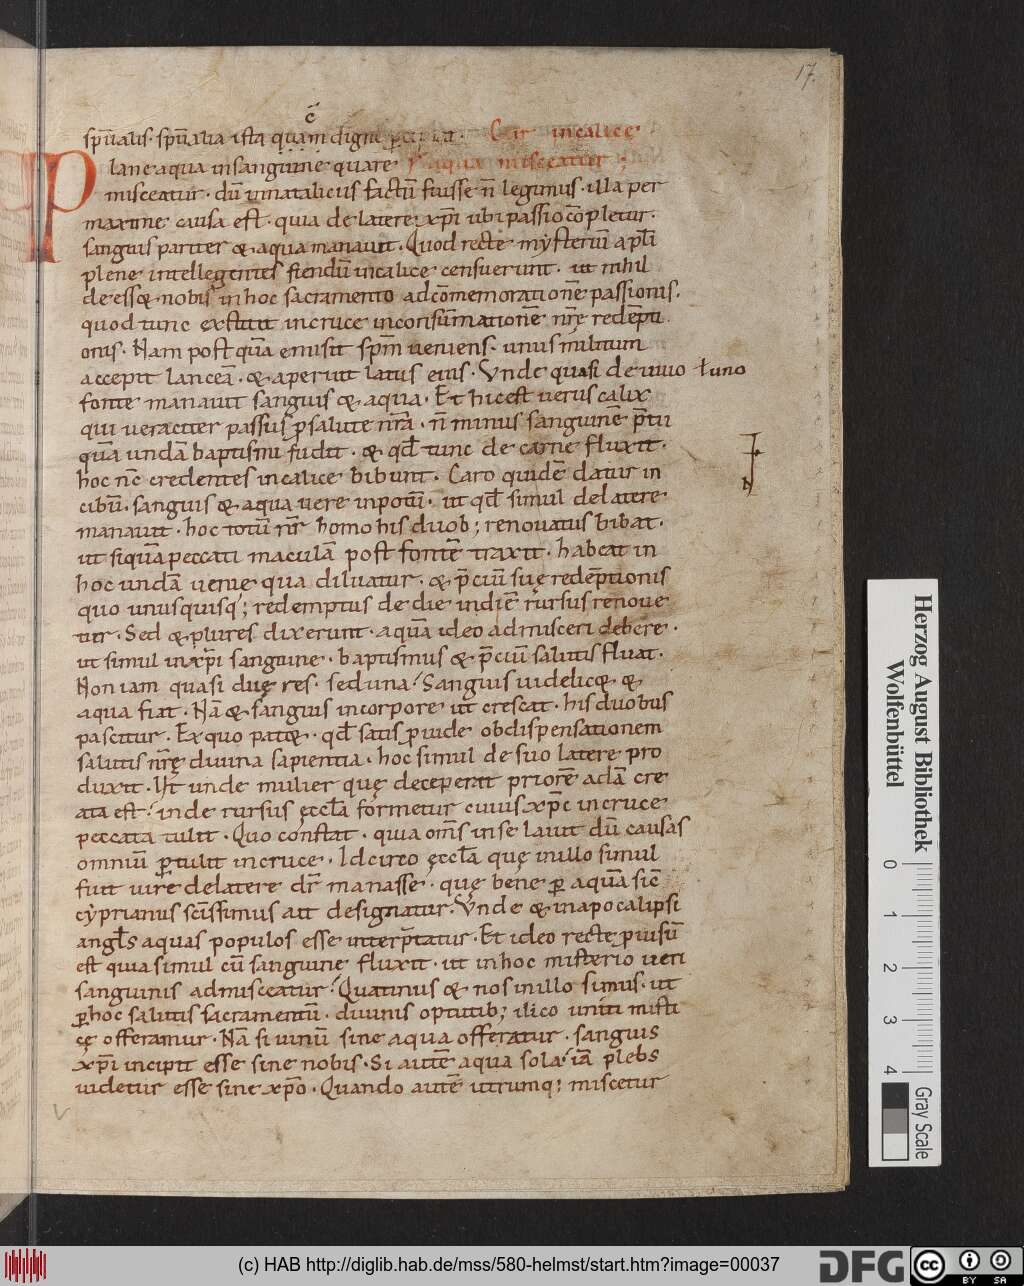 17.
sp̄ualis· sp̄ualia ista quam digni p̲cipiat· Cur incalice
lane aqua insanguine quare aqua misceatur;
P misceatur· dū innataliciis factū fuisse n̄ legimus· illa per
maxime causa est· quia delatere xp̄i ubi passio cōpletur·
sanguis pariter & aqua manauit· Quod recte mẏsteriū apl̄i
plene intellegentes fiendū incalice censuerunt· ut nihil
deess& nobis in hoc sacramento adcōmemorationē passionis·
quod tunc exstitit incruce inconsūmationē nr̄ę redēpti
onis· Nam postquā emisit sp̄m ueniens· unus militum
accepit lanceā· & aperuit latus eius· Vnde quasi de uiuo ł uno
fonte manauit sanguis & aqua· Et hic est uerus calix
qui ueraciter passus p̲salute nr̄a· n̄ minus sanguinē p̄tii
quā undā baptismi fudit· & qd̄ tunc de carne fluxit·
hoc nc̄ credentes incalice bibunt· Caro quidē datur in
cibū· sanguis & aqua uere inpotū· ut qd̄ simul delatere
manauit· hoc totū nr̄ homo his duob; renouatus bibat·
ut siquā peccati maculā post fontē traxit· habeat in
hoc undā uenię qua diluatur· & p̄ciū suę redēptionis
quo unusquisq; redemptus de die indiē rursus renoue
tur· Sed & plures dixerunt· aquā ideo admisceri debere·
ut simul inxp̄i sanguine· baptismus & p̄ciū salutis fluat·
Non iam quasi duę res· sed una· Sanguis uidelic& &
aqua fiat· Nā & sanguis incorpore ut crescat· his duobus
pascitur· Ex quo pat&· qd̄ satis p̲uide obdispensationem
salutis nr̄ę diuina sapientia· hoc simul de suo latere pro
duxit· Ut unde mulier quę deceperat priorē adā cre
ata est· inde rursus ęccl̄a formetur cuius xp̄c incruce
peccata tulit· Quo constat· quia om̄s inse lauit dū causas
omniū p̲tulit incruce· Idcirco ęccl̄a quę inillo simul
fuit uire delatere dr̄ manasse· quę bene p̲ aquā sic̄
cẏprianus sc̄issimus ait designatur· Vnde & inapocalipsi
angl̄s aquas populos esse interp̄tatur· Et ideo recte p̲uisū
est quia simul cū sanguine fluxit· ut in hoc misterio ueri
sanguinis admisceatur· Quatinus & nos inillo simus· ut
p̲ hoc salutis sacramentū· diuinis optutib; ilico uniti misti
cę offeramur· Nā si uinū sine aqua offeratur· sanguis
xp̄i incipit esse sine nobis· Si autē aqua sola· iā plebs
uidetur esse sine xp̄o· Quando autē utrumq; miscetur
Herzog August Bibliothek
Wolfenbüttel
0 1 2 3 4
Gray Scale
(c) HAB http://diglib.hab.de/mss/580-helmst/start.htm?image=00037
DFG
cc BY SA